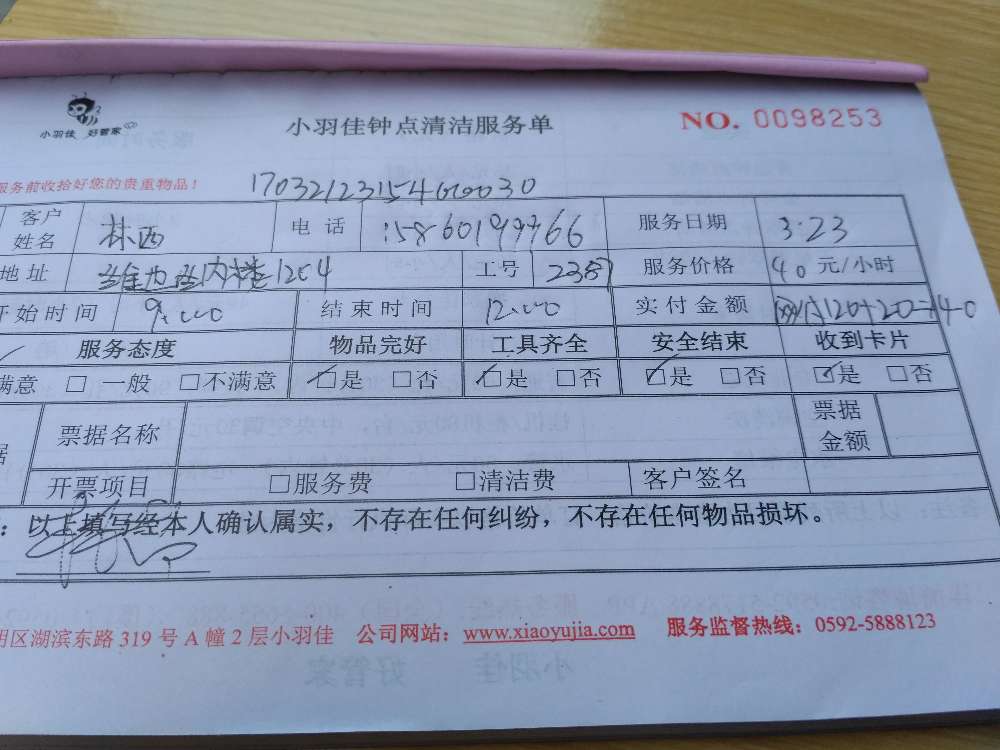 小羽佳 好管家
小羽佳钟点清洁服务单
NO. 0098253
服务前收拾好您的贵重物品！
客户姓名 林西 电话 服务日期 3.23
地址 1204 工号 服务价格 40元/小时
开始时间 9:00 结束时间 12:00 实付金额 120+20=140
服务态度 物品完好 工具齐全 安全结束 收到卡片
满意 □一般 □不满意 ☑是 □否 ☑是 □否 ☑是 □否 ☑是 □否
票据名称 票据金额
开票项目 □服务费 □清洁费 客户签名
：以上填写经本人确认属实，不存在任何纠纷，不存在任何物品损坏。
明区湖滨东路319号A幢2层小羽佳 公司网站：www.xiaoyujia.com 服务监督热线：0592-5888123